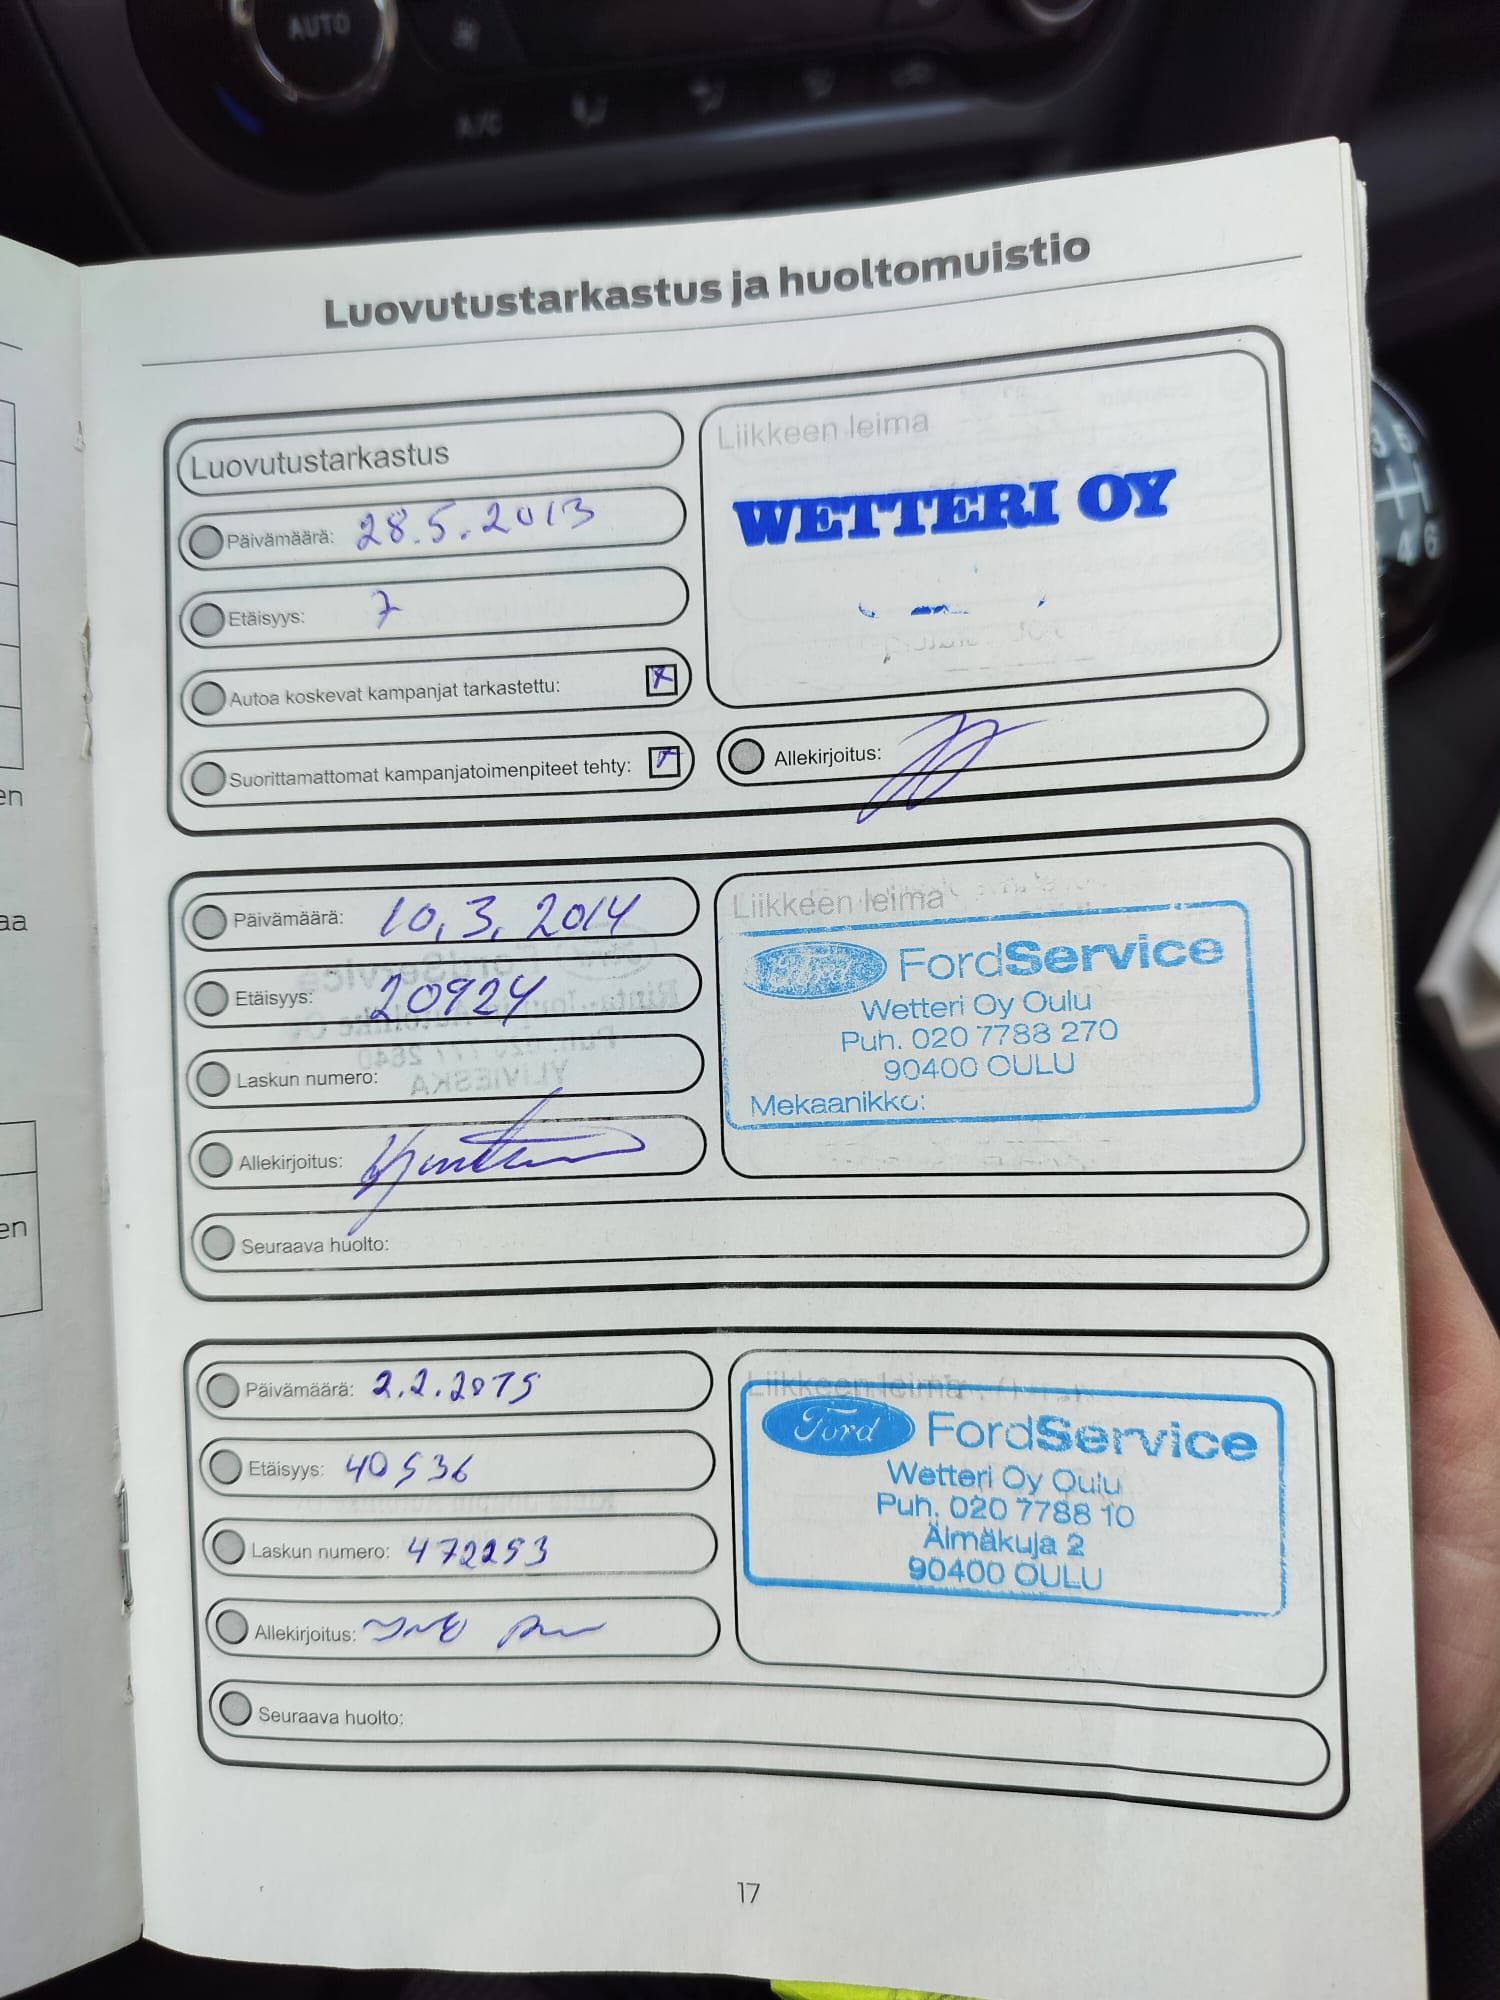 AUTO
A/C
Luovutustarkastus ja huoltomuistio
Luovutustarkastus
Päivämäärä: 28.5.2013
Etäisyys: 7
Autoa koskevat kampanjat tarkastettu: x
Suorittamattomat kampanjatoimenpiteet tehty:
Liikkeen leima
WETTERI OY
Allekirjoitus:
Päivämäärä: 10.3.2014
Etäisyys: 20924
Laskun numero:
Allekirjoitus:
Seuraava huolto:
Liikkeen leima
Ford FordService
Wetteri Oy Oulu
Puh. 020 7788 270
90400 OULU
Mekaanikko:
Päivämäärä: 2.2.2015
Etäisyys: 40536
Laskun numero: 472253
Allekirjoitus:
Seuraava huolto:
Liikkeen leima
Ford FordService
Wetteri Oy Oulu
Puh. 020 7788 10
Älmäkuja 2
90400 OULU
17
en
aa
en
3 5
4 6